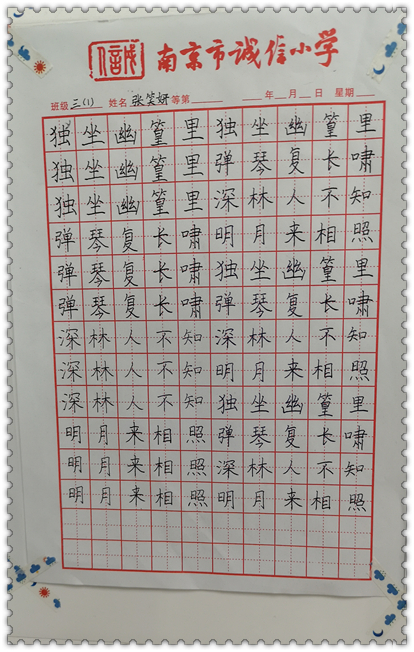 信誠 南京市诚信小学
班级 三(1) 姓名 张笑妍 等第 年 月 日 星期
独坐幽篁里独坐幽篁里
独坐幽篁里弹琴复长啸
独坐幽篁里深林人不知
弹琴复长啸明月来相照
弹琴复长啸独坐幽篁里
弹琴复长啸弹琴复长啸
深林人不知深林人不知
深林人不知明月来相照
深林人不知独坐幽篁里
明月来相照弹琴复长啸
明月来相照深林人不知
明月来相照明月来相照